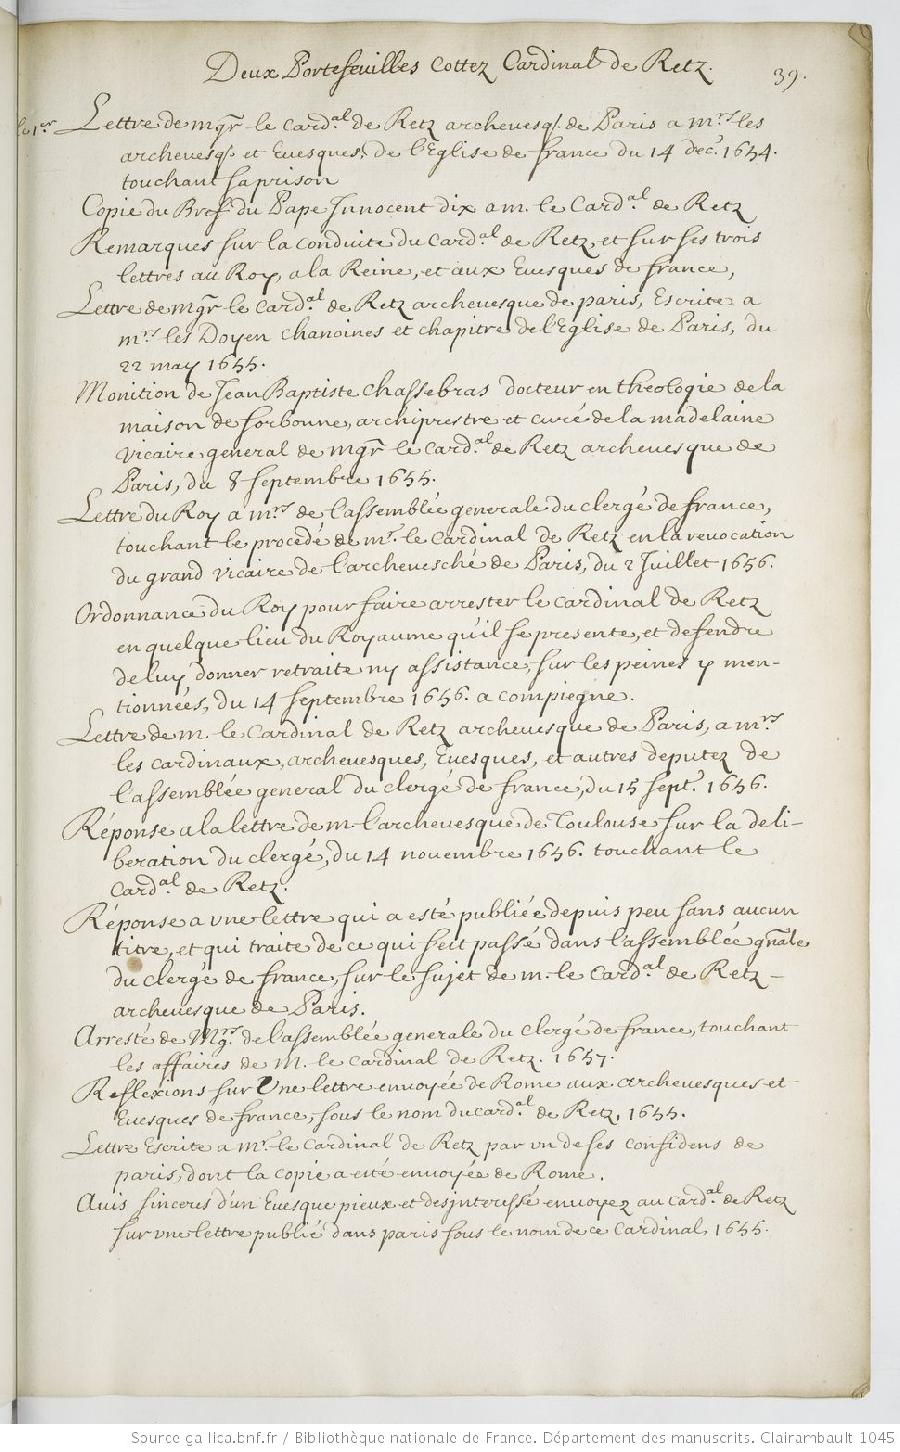 Deux Portefeuilles cottez Cardinal de Retz.
39.
le 1er
Lettre de mgr le Card.al de Retz archeuesq. de Paris a mrs les
archeuesq. et Euesques, de l'Eglise de france du 14 dec.e 1654.
touchant sa prison
Copie du Bref du Pape Innocent dix a m. le Card.al de Retz
Remarques sur la conduite du Card.al de Retz, et sur ses trois
lettres au Roy, a la Reine, et aux Euesques de france,
Lettre de mgr le Card.al de Retz archeuesque de paris, Escrite a
mrs les Doyen Chanoines et chapitre de l'Eglise de Paris, du
22 may 1655.
Monition de Jean Baptiste Chassebras docteur en theologie de la
maison de sorbonne, archiprestre et curé de la madelaine
vicaire general de mgr le Card.al de Retz archeuesque de
Paris, du 8 septembre 1655.
Lettre du Roy a mrs de l'assemblée generale du clergé de france,
touchant le procedé de mr. le Cardinal de Retz en la reuocation
du grand vicaire de l'archeuesché de Paris, du 2 Juillet 1656.
Ordonnance du Roy pour faire arrester le Cardinal de Retz
en quelque lieu du Royaume qu'il se presente, et defendre
de luy donner retraite ny assistance, sur les peines y men-
tionnées, du 14 septembre 1656. a compiegne.
Lettre de m. le Cardinal de Retz archeuesque de Paris, a mrs
les cardinaux, archeuesques, Euesques, et autres deputez de
l'assemblée general du clergé de france, du 15 sept.e 1656.
Réponse a la lettre de m. l'archeuesque de Toulouse sur la deli-
beration du clergé, du 14 nouembre 1656. touchant le
Card.al de Retz.
Réponse a vne lettre qui a esté publiée depuis peu sans aucun
titre, et qui traite de ce qui s'est passé dans l'assemblée gnale
du clergé de france, sur le sujet de m. le Card.al de Retz -
archeuesque de Paris.
Arresté de Mgrs de l'assemblée generale du clergé de france, touchant
les affaires de M. le Cardinal de Retz. 1657.
Reflexions sur Vne lettre enuoyée de Rome aux archeuesques et
Euesques de france, sous le nom du card.al de Retz, 1655.
Lettre Escrite a mr. le Cardinal de Retz par vn de ses confidens de
paris, dont la copie a eté enuoyée de Rome.
Auis sinceres d'un Euesque pieux et desinteressé enuoyez au Card.al de Retz
sur vne lettre publié dans paris sous le nom de ce Cardinal, 1655.
Source gallica.bnf.fr / Bibliothèque nationale de France. Département des manuscrits. Clairambault 1045